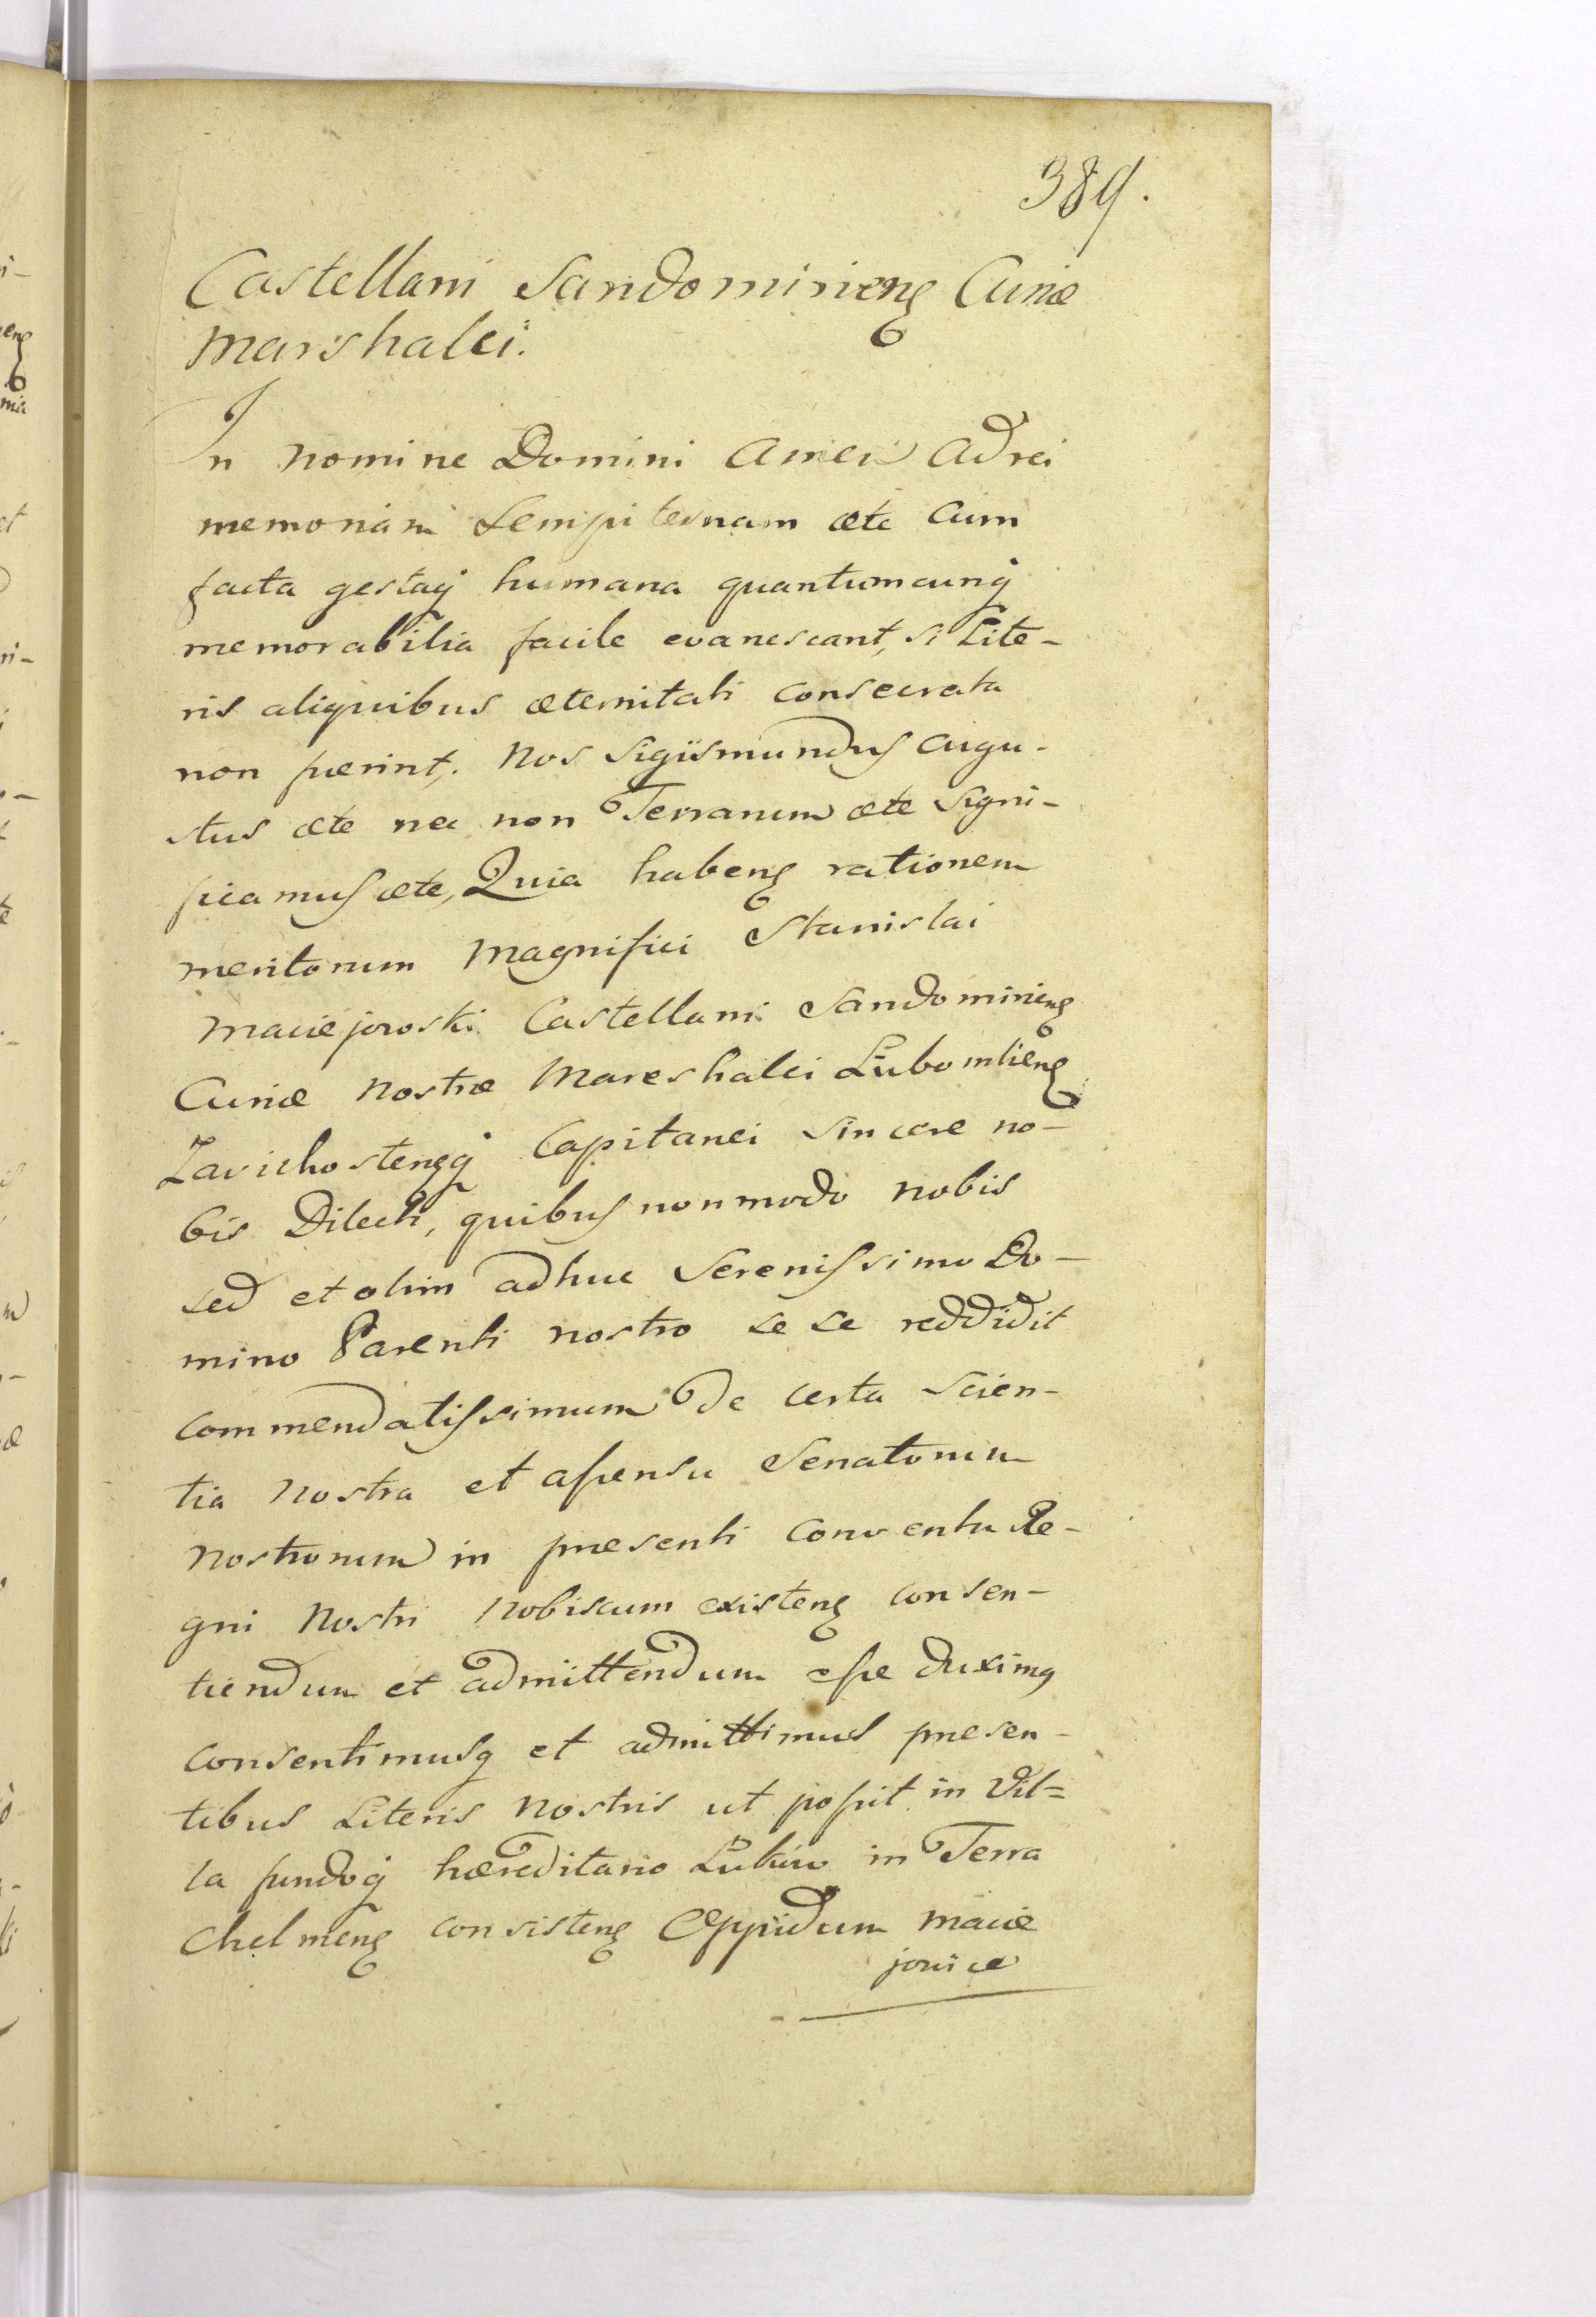 389.
Castellani Sandomirieng Curiæ
Marshalci.
In nomine Domini Amen Ad rei
memoriam Sempiternam ætc Cum
facta gestaq humana quantumcunq
memorabilia facile evanescant, si Lite-
ris aliquibus æternitati consecrata
non fuerint. Nos Sigismundus Augu-
stus ætc nec non Terrarum ætc Signi-
ficamus ætc, Quia habeng rationem
meritorum Magnifici Stanislai
Maciejowski Castellani Sandomirieng
Curiæ Nostræ Mareshalci Lubomlieng
Zavichostengq Capitanei Sincere no-
bis Dilecti, quibus non modo nobis
sed et olim adhuc Serenissimo Do-
mino Parenti nostro se se reddidit
commendatissimum De certa Scien-
tia nostra et assensu Senatorum
nostrorum in præsenti Conventu Re-
gni Nostri Nobiscum existeng consen-
tiendum et admittendum esse duximg
consentimusq et admittimus præsen-
tibus Literis Nostris ut possit in Vil=
la fundoq hæreditario Lukow in Terra
Chelmeng consisteng Oppidum Macie
jowice